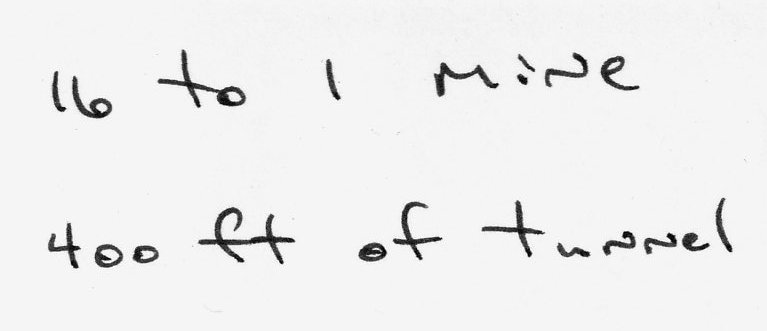 16 to 1 mine
400 ft of tunnel